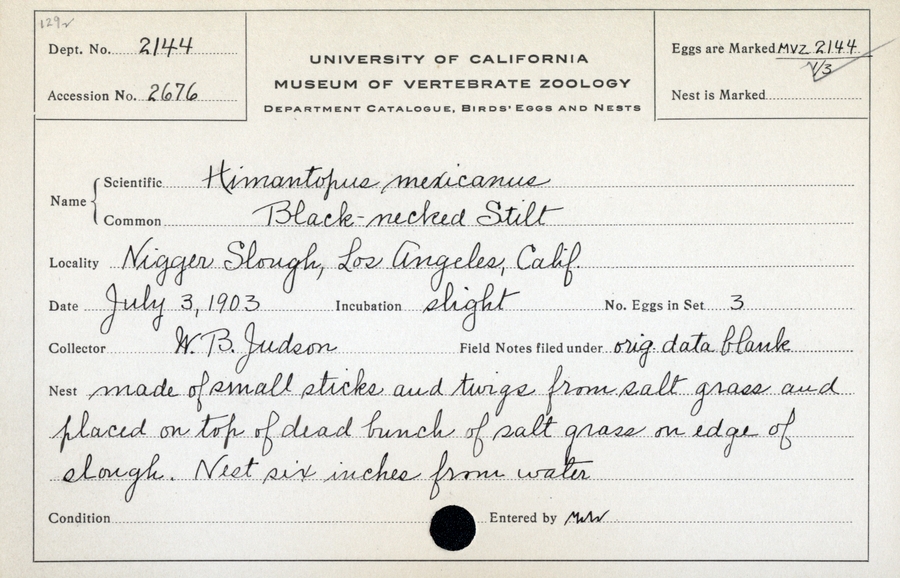 129
Dept. No. 2144
Accession No. 2676
UNIVERSITY OF CALIFORNIA
MUSEUM OF VERTEBRATE ZOOLOGY
DEPARTMENT CATALOGUE, BIRDS' EGGS AND NESTS
Eggs are Marked MVZ 2144
1/3
Nest is Marked
Name
Scientific Himantopus mexicanus
Common Black-necked Stilt
Locality Nigger Slough, Los Angeles, Calif.
Date July 3, 1903 Incubation slight No. Eggs in Set 3
Collector W. B. Judson Field Notes filed under orig. data blank
Nest made of small sticks and twigs from salt grass and
placed on top of dead bunch of salt grass on edge of
slough. Nest six inches from water
Condition Entered by